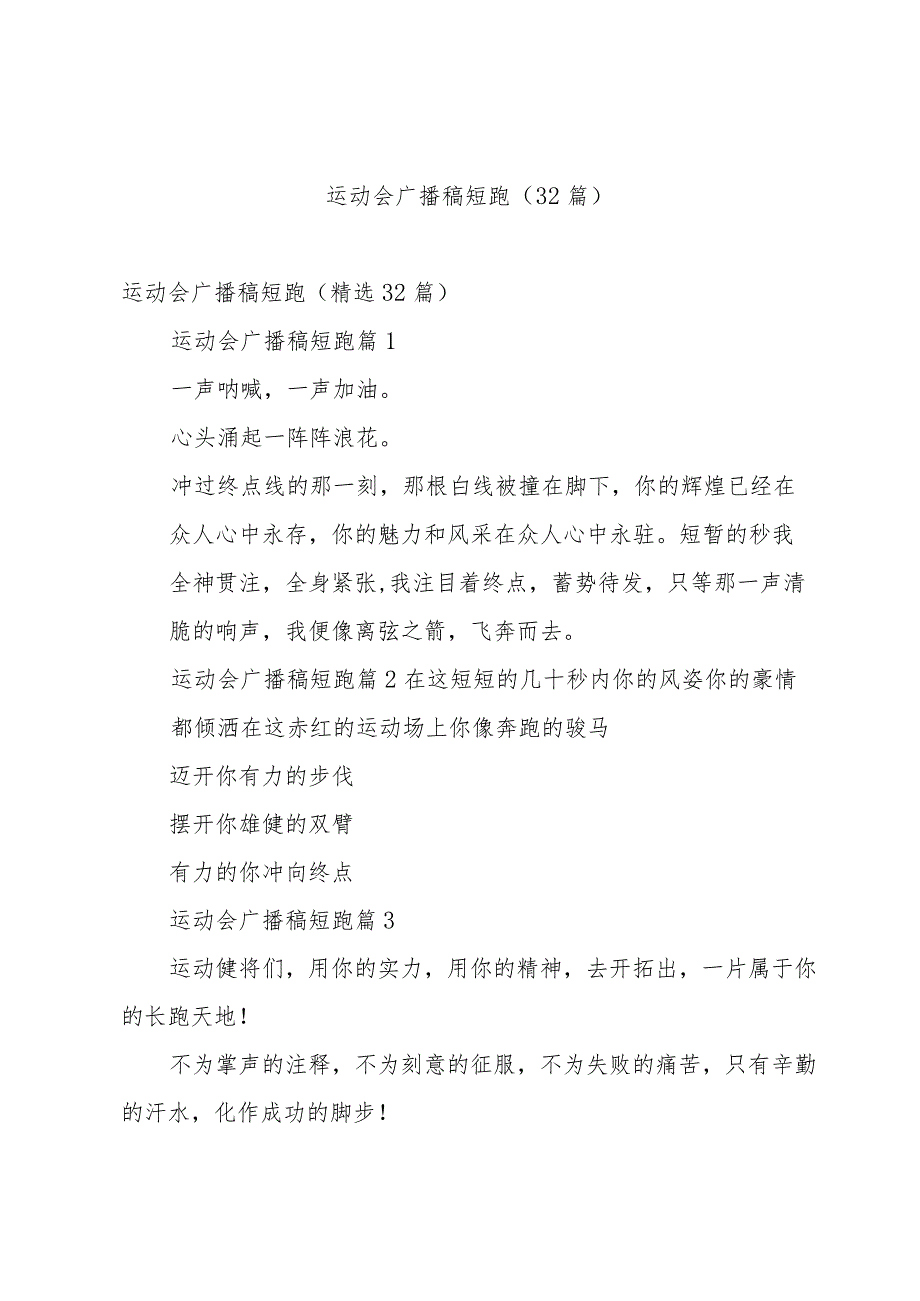 运动会广播稿短跑（32 篇）
运动会广播稿短跑（精选 32 篇）
运动会广播稿短跑篇 1
一声呐喊，一声加油。
心头涌起一阵阵浪花。
冲过终点线的那一刻，那根白线被撞在脚下，你的辉煌已经在
众人心中永存，你的魅力和风采在众人心中永驻。短暂的秒我
全神贯注，全身紧张,我注目着终点，蓄势待发，只等那一声清
脆的响声，我便像离弦之箭，飞奔而去。
运动会广播稿短跑篇 2 在这短短的几十秒内你的风姿你的豪情
都倾洒在这赤红的运动场上你像奔跑的骏马
迈开你有力的步伐
摆开你雄健的双臂
有力的你冲向终点
运动会广播稿短跑篇 3
运动健将们，用你的实力，用你的精神，去开拓出，一片属于你
的长跑天地！
不为掌声的注释，不为刻意的征服，不为失败的痛苦，只有辛勤
的汗水，化作成功的脚步！